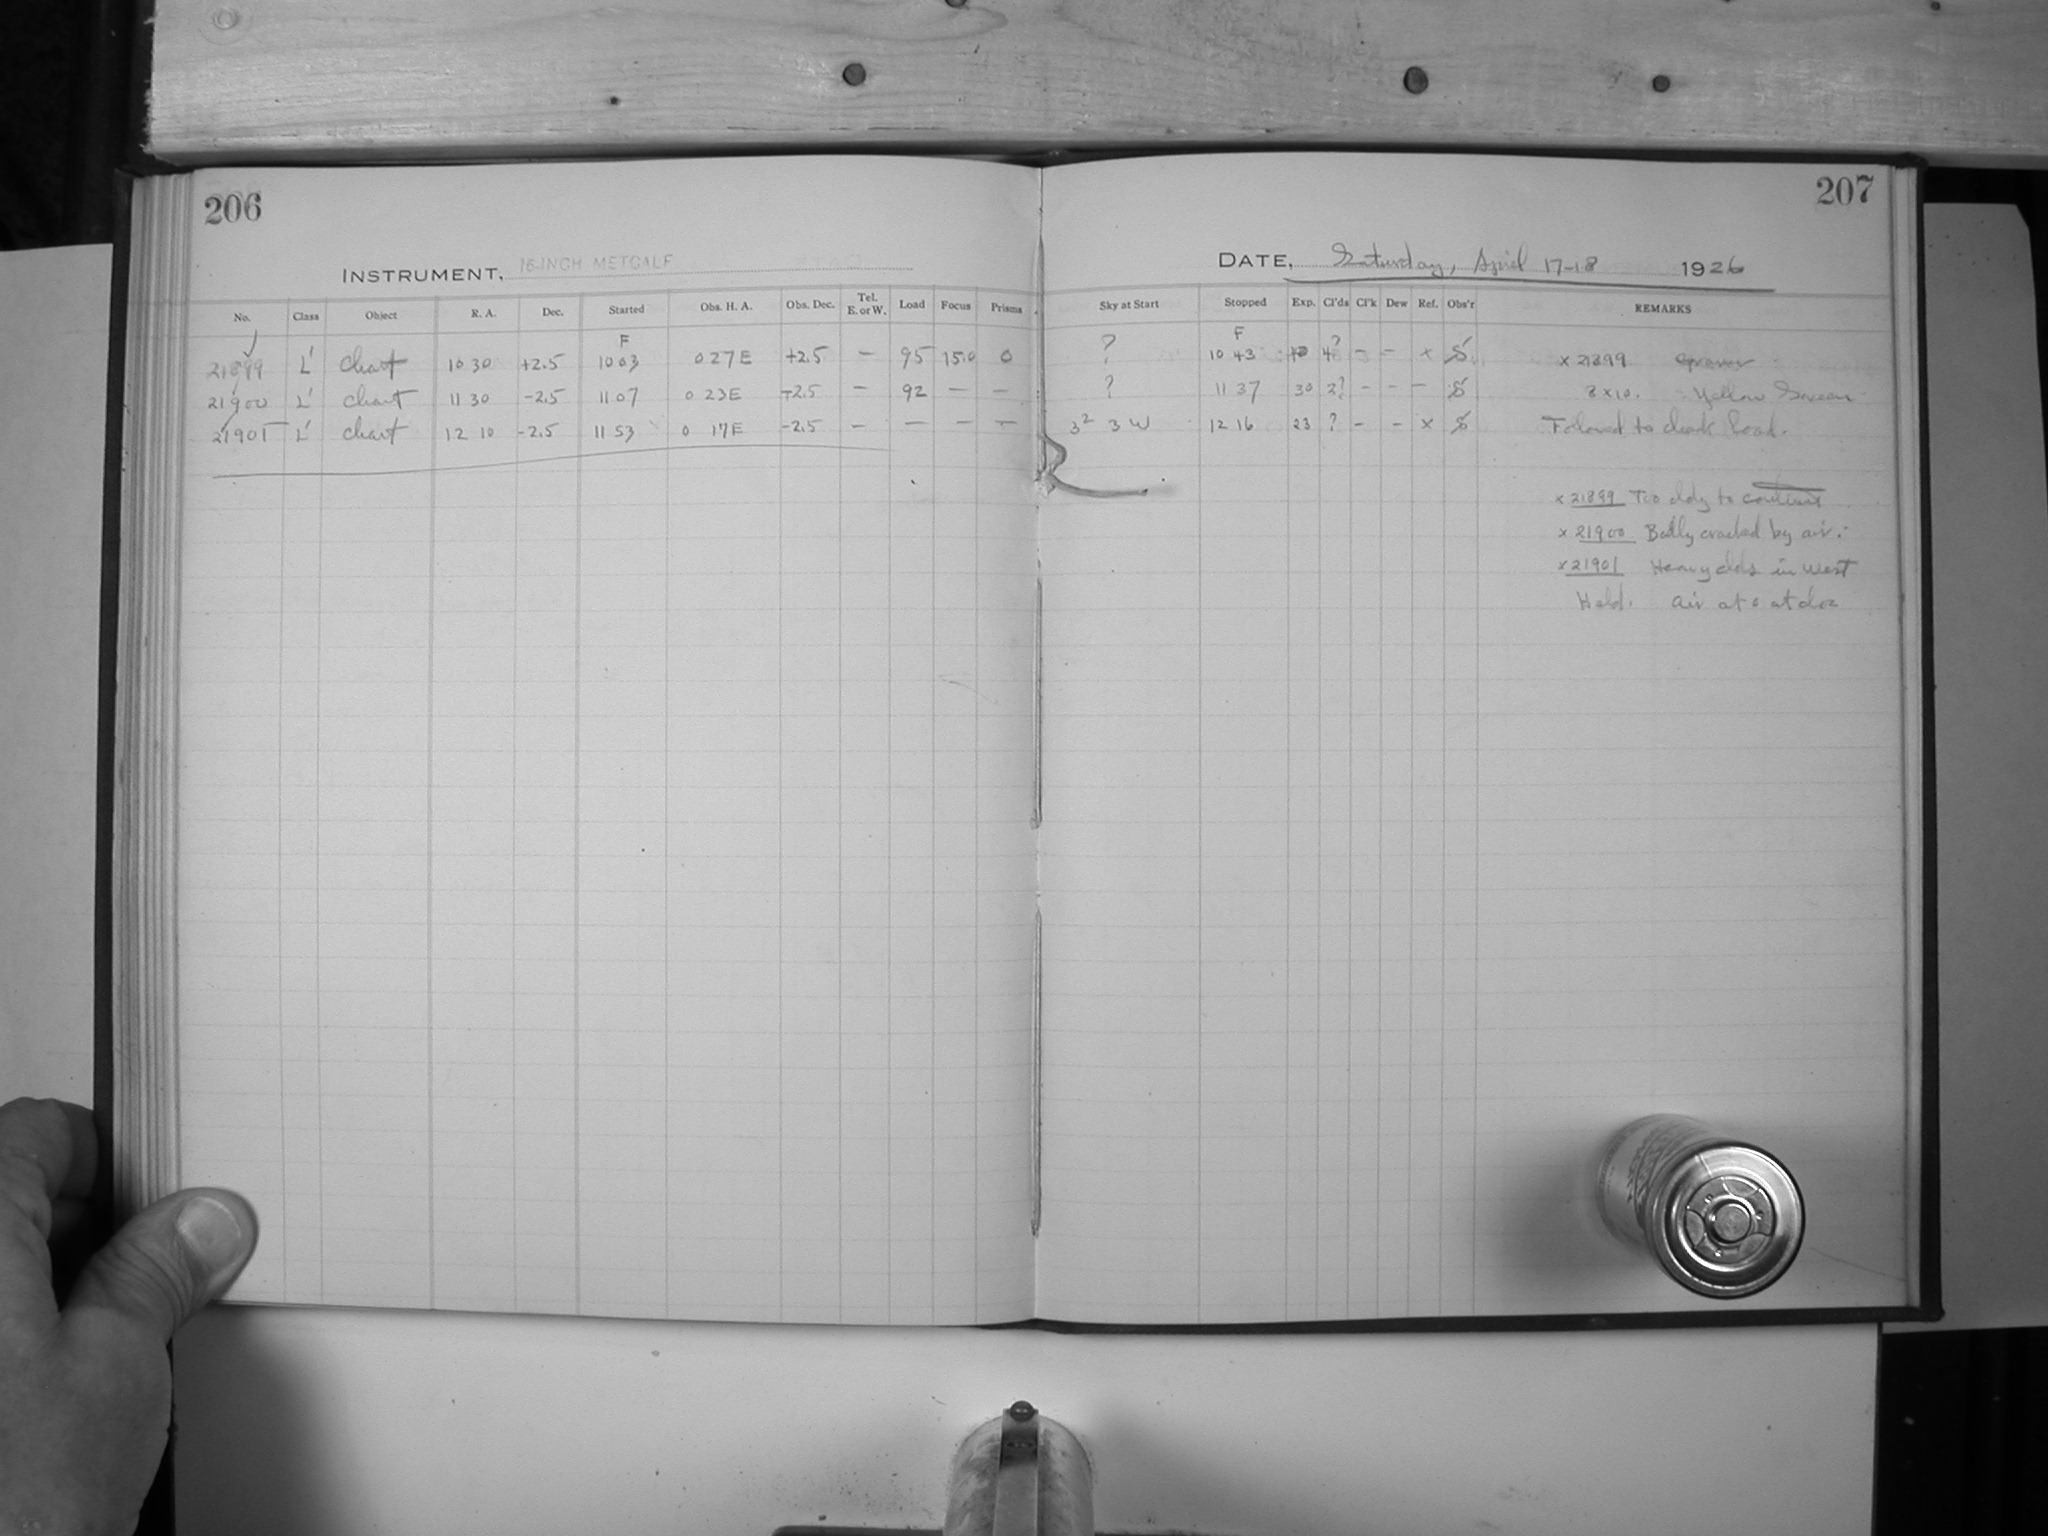 206
INSTRUMENT, 16-INCH METCALF
No. Class Object R. A. Dec. Started Obs. H. A. Obs. Dec. Tel. E. or W. Load Focus Prisms
F
21899 L' Chart 10 30 +2.5 10 03 0 27 E +2.5 — 95 15.0 0
21900 L' chart 11 30 -2.5 11 07 0 23 E -2.5 — 92 — —
21901 L' chart 12 10 -2.5 11 53 0 17 E -2.5 — — — —
207
DATE, Saturday, April 17-18 1926
Sky at Start Stopped Exp. Cl'ds Cl'k Dew Ref. Obs'r REMARKS
F
? 10 43 40 4? — — x S x 21899
? 11 37 30 2? — — — S 8 x 10. Yellow Green
3² 3 W 12 16 23 ? — — x S Followed to check load.
x 21899 Too cldy to continue
x 21900 Badly cracked by air.
x 21901 Heavy clds in west
Held. Air at 0 at